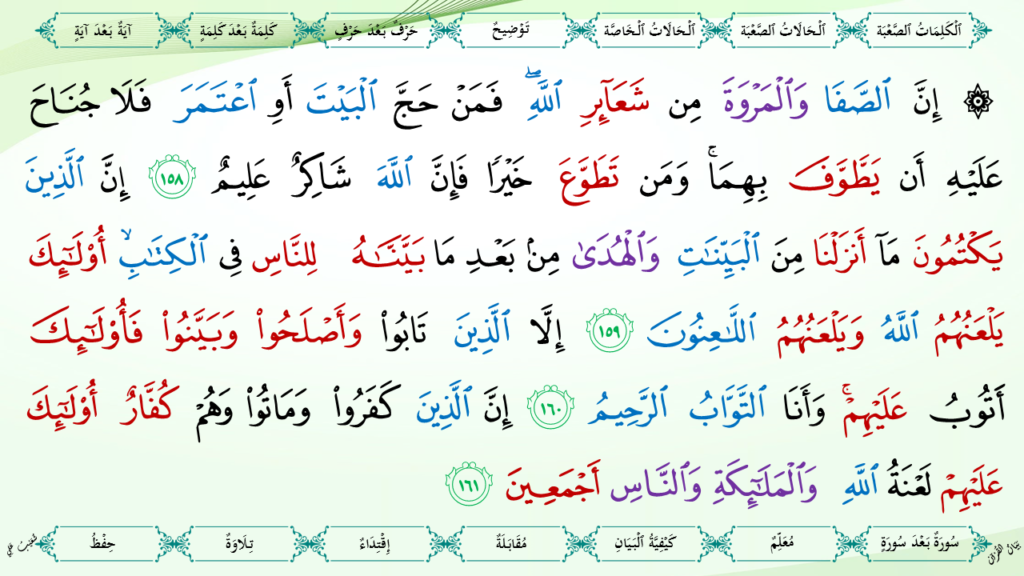 ٱلْكَلِمَاتُ ٱلصَّعْبَة ٱلْحَالَاتُ ٱلصَّعْبَة ٱلْحَالَاتُ ٱلْخَاصَّة تَوْضِيحٌ حَرْفٌ بَعْدَ حَرْفٍ كَلِمَةٌ بَعْدَ كَلِمَةٍ آيَةٌ بَعْدَ آيَةٍ
۞ إِنَّ ٱلصَّفَا وَٱلْمَرْوَةَ مِن شَعَآئِرِ ٱللَّهِۖ فَمَنْ حَجَّ ٱلْبَيْتَ أَوِ ٱعْتَمَرَ فَلَا جُنَاحَ
عَلَيْهِ أَن يَطَّوَّفَ بِهِمَاۚ وَمَن تَطَوَّعَ خَيْرًا فَإِنَّ ٱللَّهَ شَاكِرٌ عَلِيمٌ ١٥٨ إِنَّ ٱلَّذِينَ
يَكْتُمُونَ مَآ أَنزَلْنَا مِنَ ٱلْبَيِّنَـٰتِ وَٱلْهُدَىٰ مِنۢ بَعْدِ مَا بَيَّنَّـٰهُ لِلنَّاسِ فِى ٱلْكِتَـٰبِۙ أُو۟لَـٰٓئِكَ
يَلْعَنُهُمُ ٱللَّهُ وَيَلْعَنُهُمُ ٱللَّـٰعِنُونَ ١٥٩ إِلَّا ٱلَّذِينَ تَابُوا۟ وَأَصْلَحُوا۟ وَبَيَّنُوا۟ فَأُو۟لَـٰٓئِكَ
أَتُوبُ عَلَيْهِمْۚ وَأَنَا ٱلتَّوَّابُ ٱلرَّحِيمُ ١٦٠ إِنَّ ٱلَّذِينَ كَفَرُوا۟ وَمَاتُوا۟ وَهُمْ كُفَّارٌ أُو۟لَـٰٓئِكَ
عَلَيْهِمْ لَعْنَةُ ٱللَّهِ وَٱلْمَلَـٰٓئِكَةِ وَٱلنَّاسِ أَجْمَعِينَ ١٦١
سُورَةٌ بَعْدَ سُورَةٍ مُعَلِّمٌ كَيْفِيَّةُ ٱلْبَيَانِ مُقَابَلَةٌ إِقْتِدَاءٌ تِلَاوَةٌ حِفْظٌ
بَيَانُ القُرْآنِ